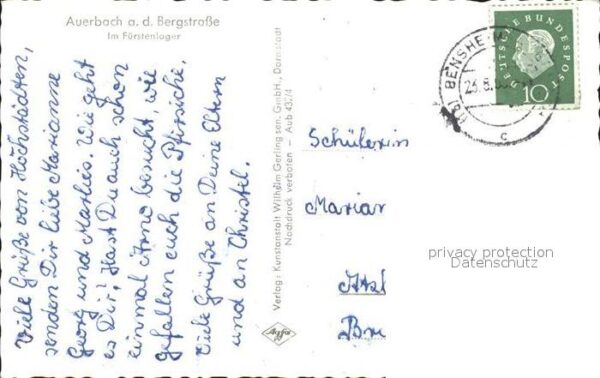 Auerbach a. d. Bergstraße
Im Fürstenlager
Viele Grüße von Hochstädten,
senden Dir liebe Marianne
Georg und Marlies. Wie geht
es Dir? Hast Du auch schon
einmal Arno besucht, wie
gefallen euch die Pfirsiche.
Viele Grüße an Deine Eltern
und an Christel.
Verlag: Kunstanstalt Wilhelm Gerling sen. GmbH., Darmstadt
Nachdruck verboten – Aub 437/4
Agfa
DEUTSCHE BUNDESPOST
10
BENSHEIM
c
Schülerin
Marian
privacy protection
Datenschutz